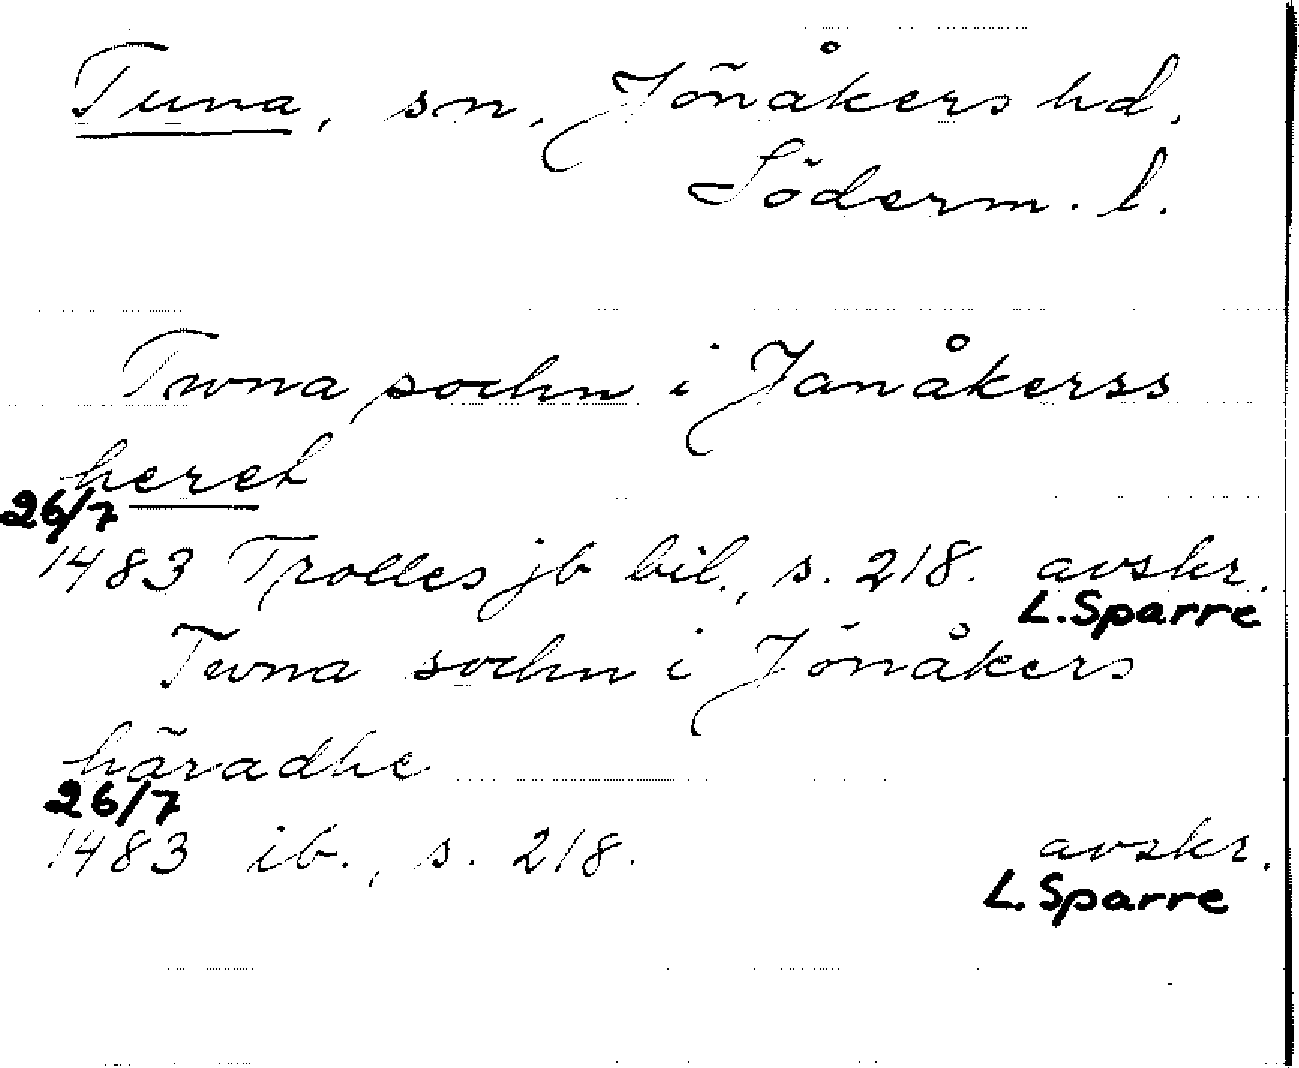 Tuna, sn, Jönåkers hd,
Söderm. l.
Twna sochn i Janåkerss
heret
26/7
1483 Trolles jb bil., s. 218. avskr.
L. Sparre
Twna sochn i Jönåkers
häradhe
26/7
1483 ib., s. 218. avskr.
L. Sparre